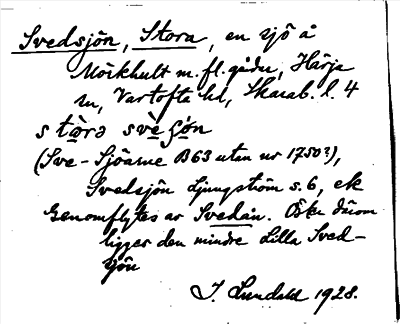 Svedsjön, Stora, en sjö å
Mörkhult m. fl. gårdar, Härja
sn, Vartofta hd, Skarab. l. 4
(Sve-Sjöarne B63 utan nr 1750?),
Svedsjön Ljungström s. 6, ek
Genomflytes av Svedån. Öster därom
ligger den mindre Lilla Sved-
sjön
J. Lundahl 1928.